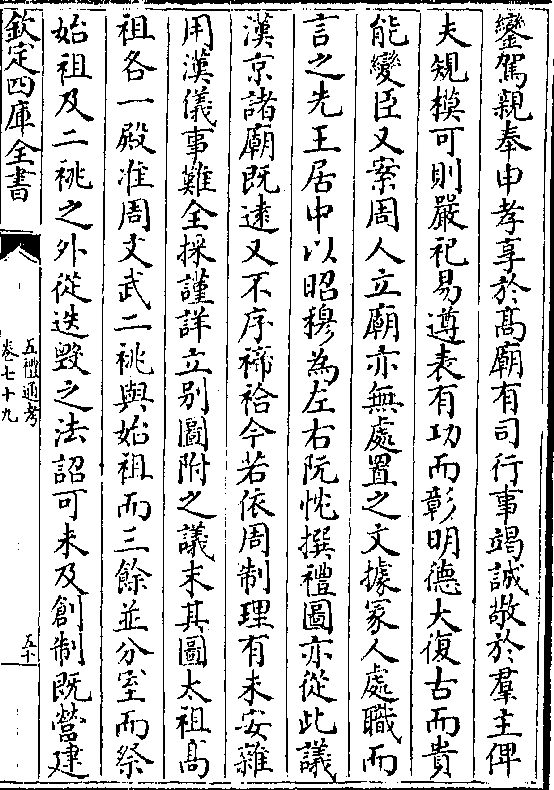 鑾駕親奉申孝享於髙廟有司行事竭誠敬於羣主俾
夫規模可則嚴祀易遵表有功而彰明德大復古而貴
能變臣又案周人立廟亦無處置之文據冢人處職而
言之先王居中以昭穆為左右阮忱撰禮圖亦從此議
漢京諸廟既逺又不序禘祫今若依周制理有未安雜
用漢儀事難全採謹詳立别圖附之議末其圖太祖髙
祖各一殿准周文武二祧與始祖而三餘並分室而祭
始祖及二祧之外從迭毁之法詔可未及創制既營建
欽定四庫全書
五禮通考
卷七十九
五十